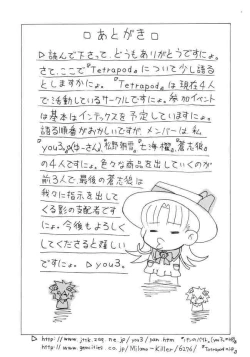 □あとがき□
▷読んで下さって、どうもありがとうですにょ。
さて、ここで『Tetrapod』について少し語る
としますかにょ。『Tetrapod』は現在4人
で活動しているサークルですにょ。参加イベント
は基本はインデックスを予定していますにょ。
語る順番がおかしいですが、メンバーは私
『you3.p(ゆーさん)』
の4人ですにょ。色々な商品を出していくのが
前3人で、最後の蒼志狼は
我々に指示を出して
くる影の支配者です
にょ。今後もよろしく
してくださると嬉しい
ですにょ。▷you3。